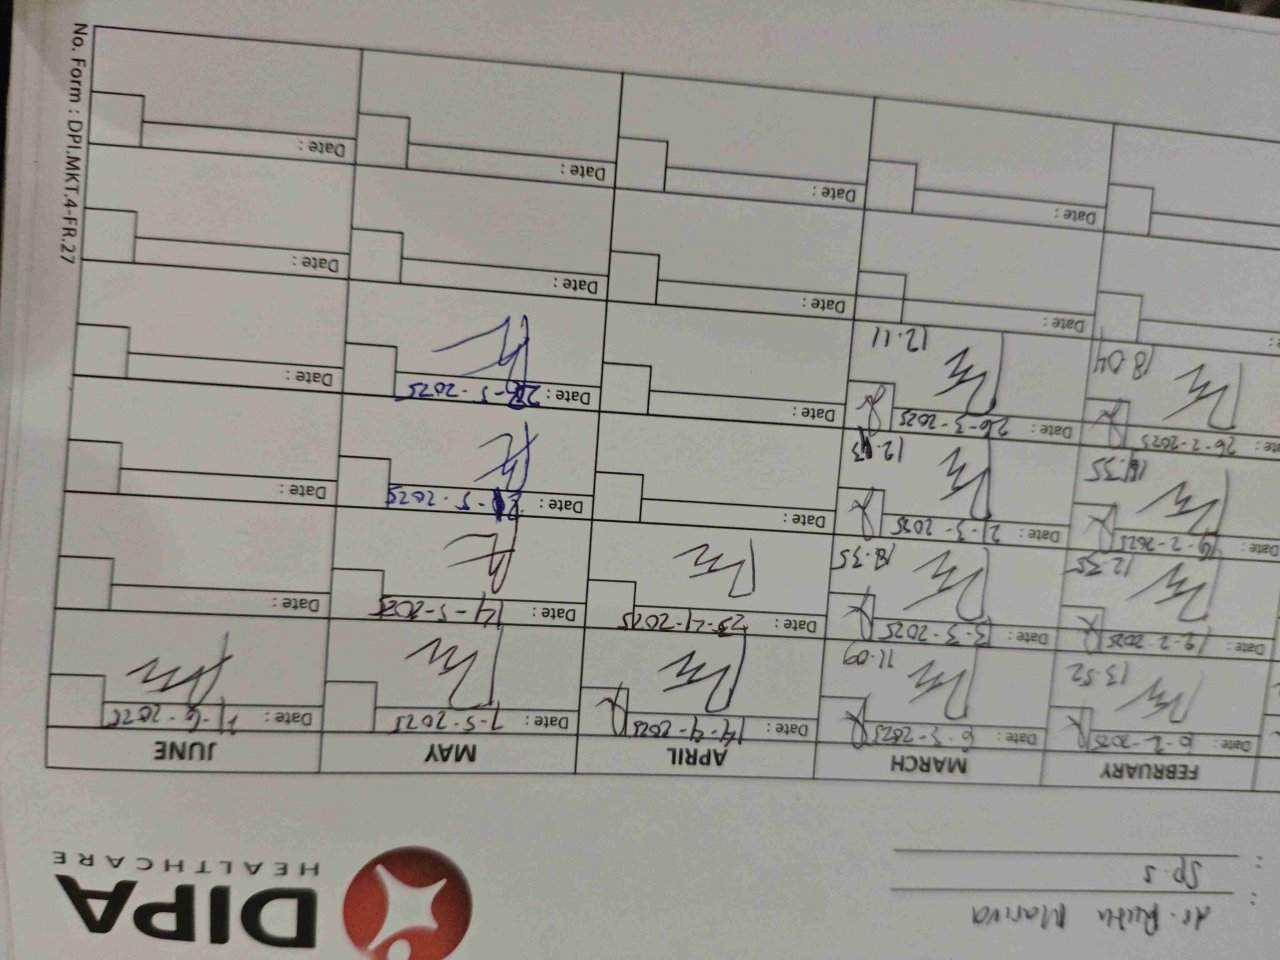 dr. Ruth Mariva
:
Sp.S
:
DIPA
HEALTHCARE
FEBRUARY MARCH APRIL MAY JUNE
Date: 6-2-2025 Date: 6-3-2025 Date: 14-4-2025 Date: 7-5-2025 Date: 11-6-2025
13.52 11.09
Date: 12-2-2025 Date: 13-3-2025 Date: 23-4-2025 Date: 14-5-2025 Date:
12.35 18.35
Date: 19-2-2025 Date: 21-3-2025 Date: Date: -5-2025 Date:
18.35 12.13
Date: 26-2-2025 Date: 26-3-2025 Date: Date: -5-2025 Date:
18.04 12.11
Date: Date: Date: Date:
Date: Date: Date: Date:
No. Form : DPI.MKT.4-FR.27